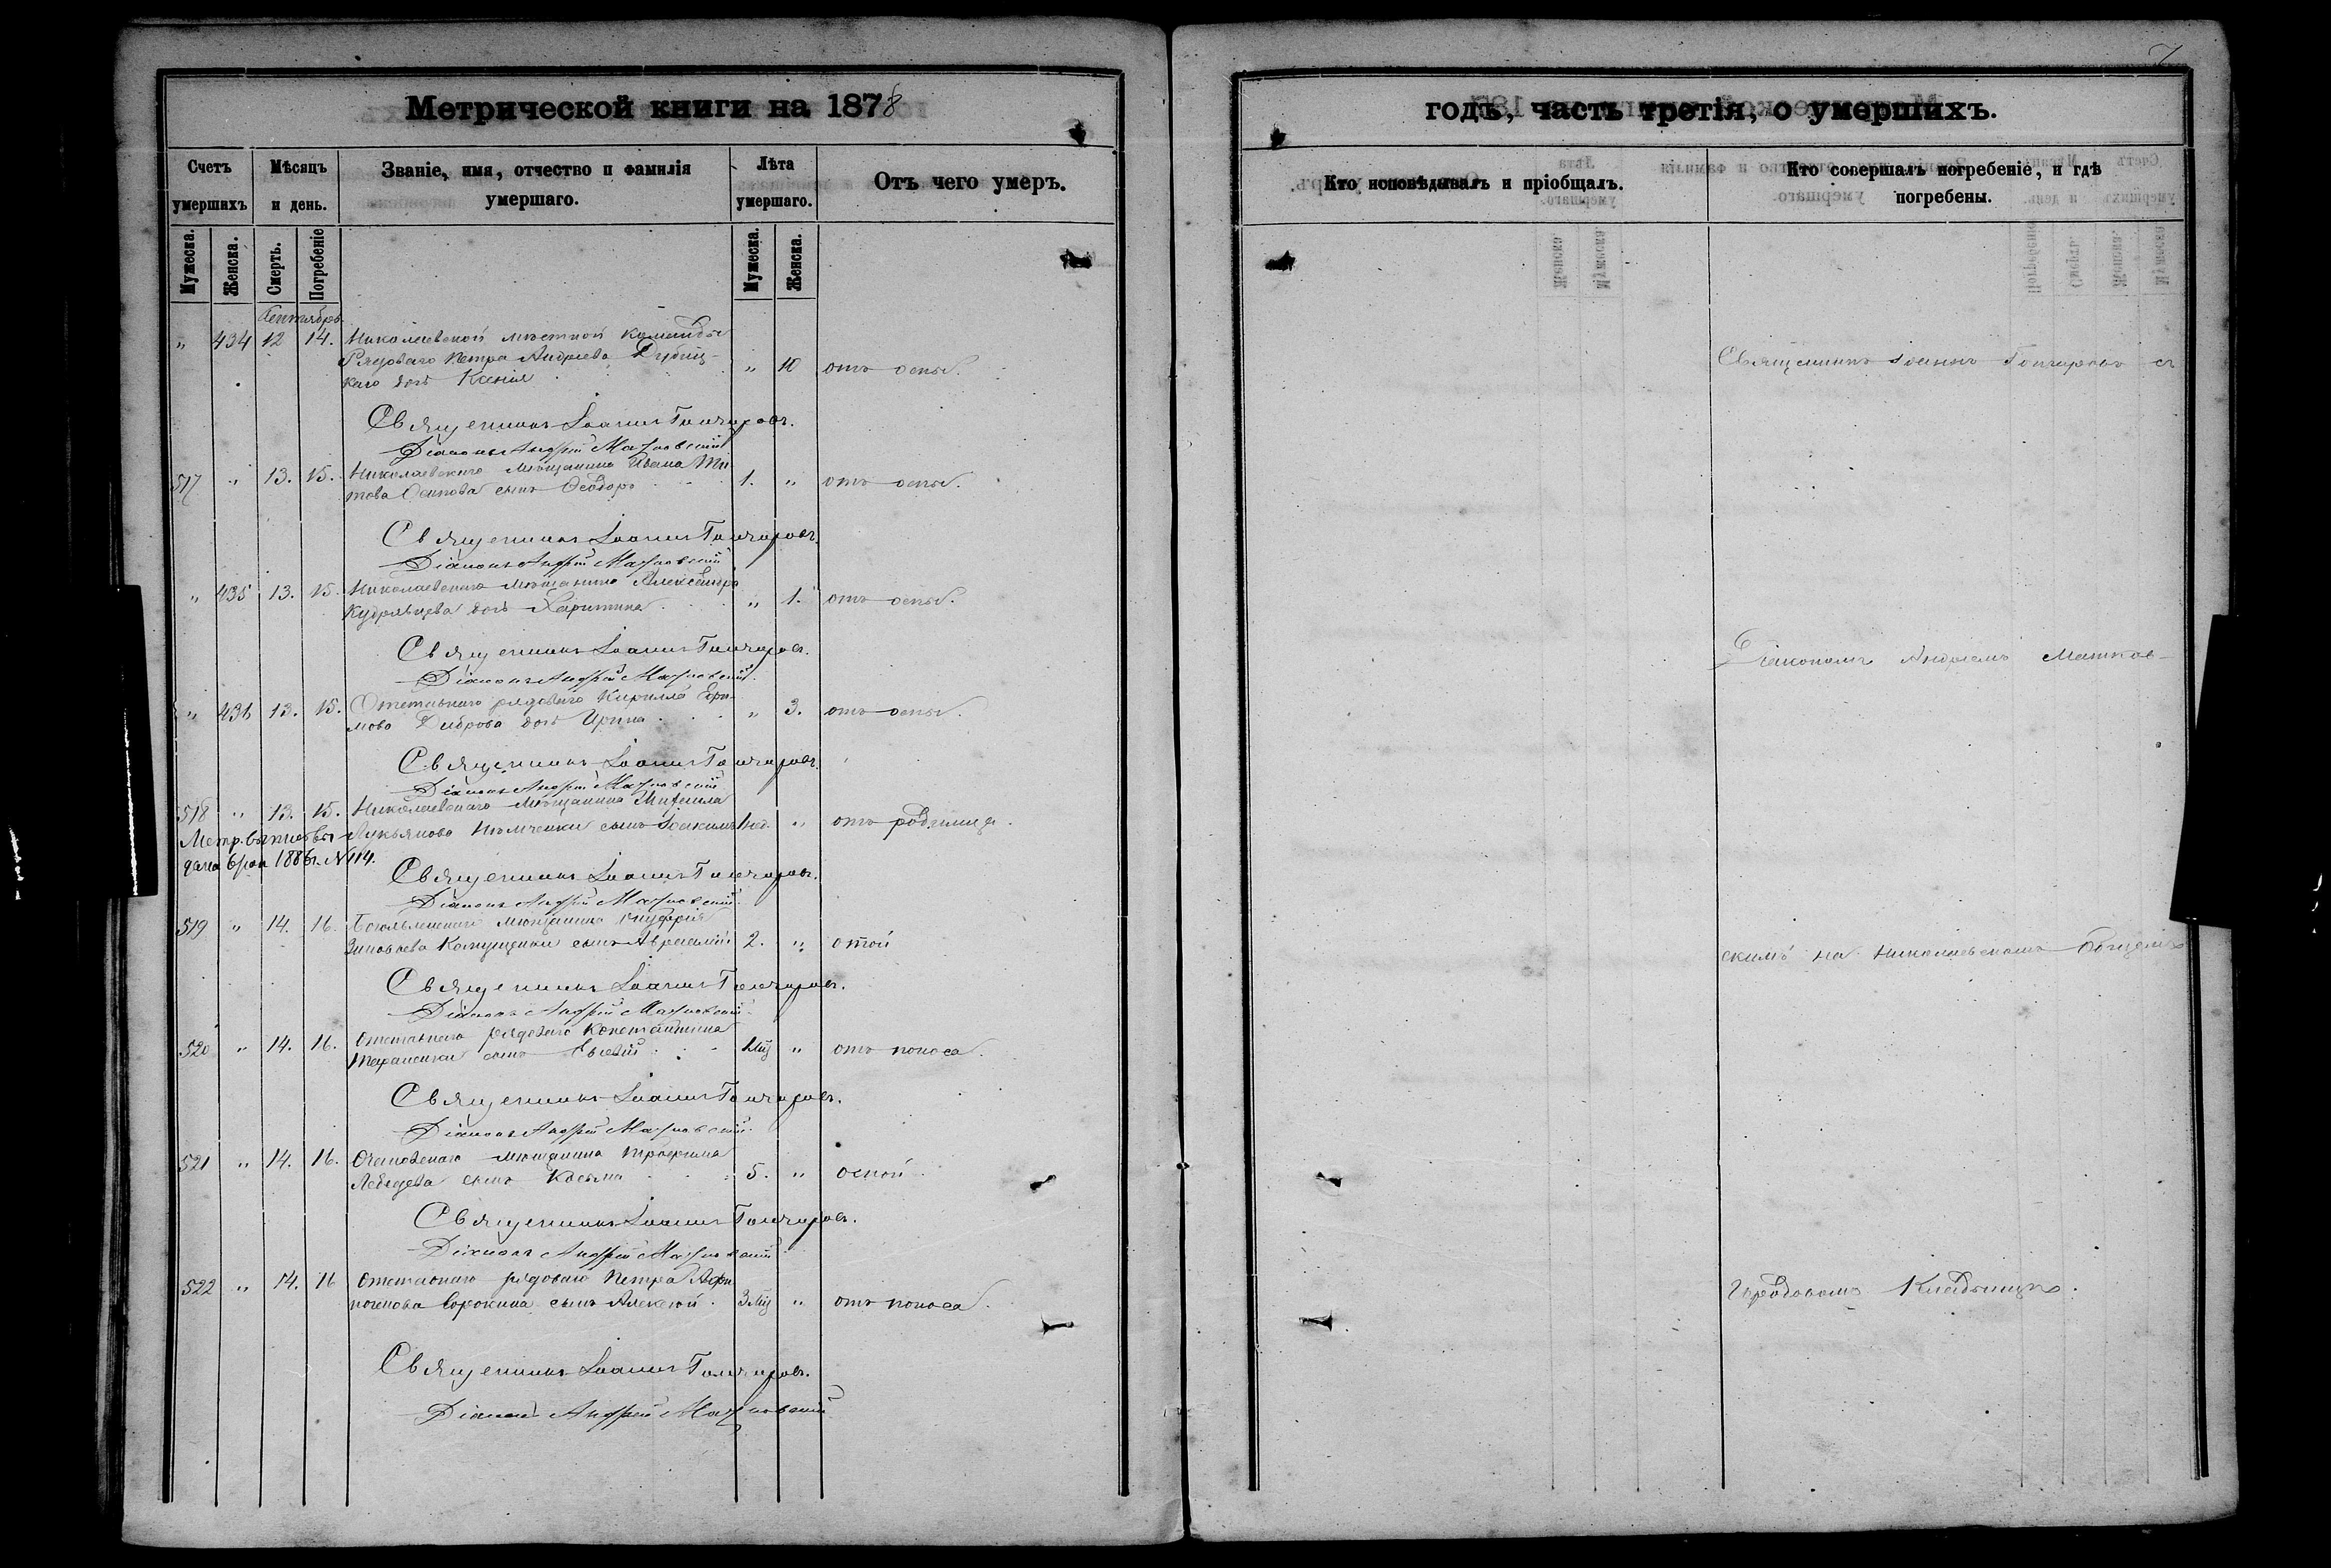 Метрической книги на 1878
Счетъ умершихъ
Мѣсяцъ и день.
Званіе, имя, отчество и фамилія умершаго.
Лѣта умершаго.
Отъ чего умеръ.
Мужеска. Женска. Смерть. Погребеніе Мужеска. Женска.
Сентябрь
" 434 12 14. Николаевской мѣстной команды
Рядоваго Петра Андреева Дубиц-
каго дочь Ксенія " 10 отъ оспы.
Священникъ Іоаннъ Гончаровъ.
Діаконъ Андрей Матковскій
517 " 13. 15. Николаевскаго мѣщанина Ивана Ти
това Осипова сынъ Ѳеодоръ 1. " отъ оспы.
Священникъ Іоаннъ Гончаровъ.
Діаконъ Андрей Матковскій
" 435 13. 15. Николаевскаго мѣщанина Александра
Кудрявцева дочь Харитина " 1. отъ оспы.
Священникъ Іоаннъ Гончаровъ.
Діаконъ Андрей Матковскій.
" 436 13. 15. Отставнаго рядоваго Кирилла
Диброва дочь Ирина " 3. отъ оспы.
Священникъ Іоаннъ Гончаровъ.
Діаконъ Андрей Матковскій
518 " 13. 15. Николаевскаго мѣщанина Михаила
Лукьянова сынъ Іоакимъ " отъ родимца.
Метр.
дана 1886г. N 114.
Священникъ Іоаннъ Гончаровъ.
Діаконъ Андрей Матковскій.
519 " 14. 16. мѣщанина Онуфрія
Зиновьева сынъ 2. "
Священникъ Іоаннъ Гончаровъ.
Діаконъ Андрей Матковскій.
520 " 14. 16. Отставнаго рядоваго Константина
Тараненки сынъ 1 Мц " отъ поноса.
Священникъ Іоаннъ Гончаровъ.
Діаконъ Андрей Матковскій.
521 " 14. 16. Очаковскаго мѣщанина Трофима
Лебедева сынъ Косьма 5. " оспой
Священникъ Іоаннъ Гончаровъ.
Діаконъ Андрей Матковскій
522 " 14. 16 Отставнаго рядоваго Петра Афи
ногенова Сорокина сынъ Алексѣй. 3 Мц " отъ поноса.
Священникъ Іоаннъ Гончаровъ.
Діаконъ Андрей Матковскій
7
годъ, часть третія, о умершихъ.
Кто исповѣдывалъ и пріобщалъ.
Кто совершалъ погребеніе, и гдѣ
погребены.
Священникъ Іоаннъ Гончаровъ съ
Діакономъ Андреемъ Матков-
скимъ на Николаевскомъ Общемъ
Городовомъ Кладбищѣ.